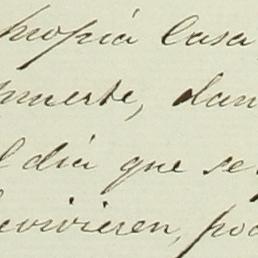 propia casa
muerte, dan
l dia que se
vivieren, poc